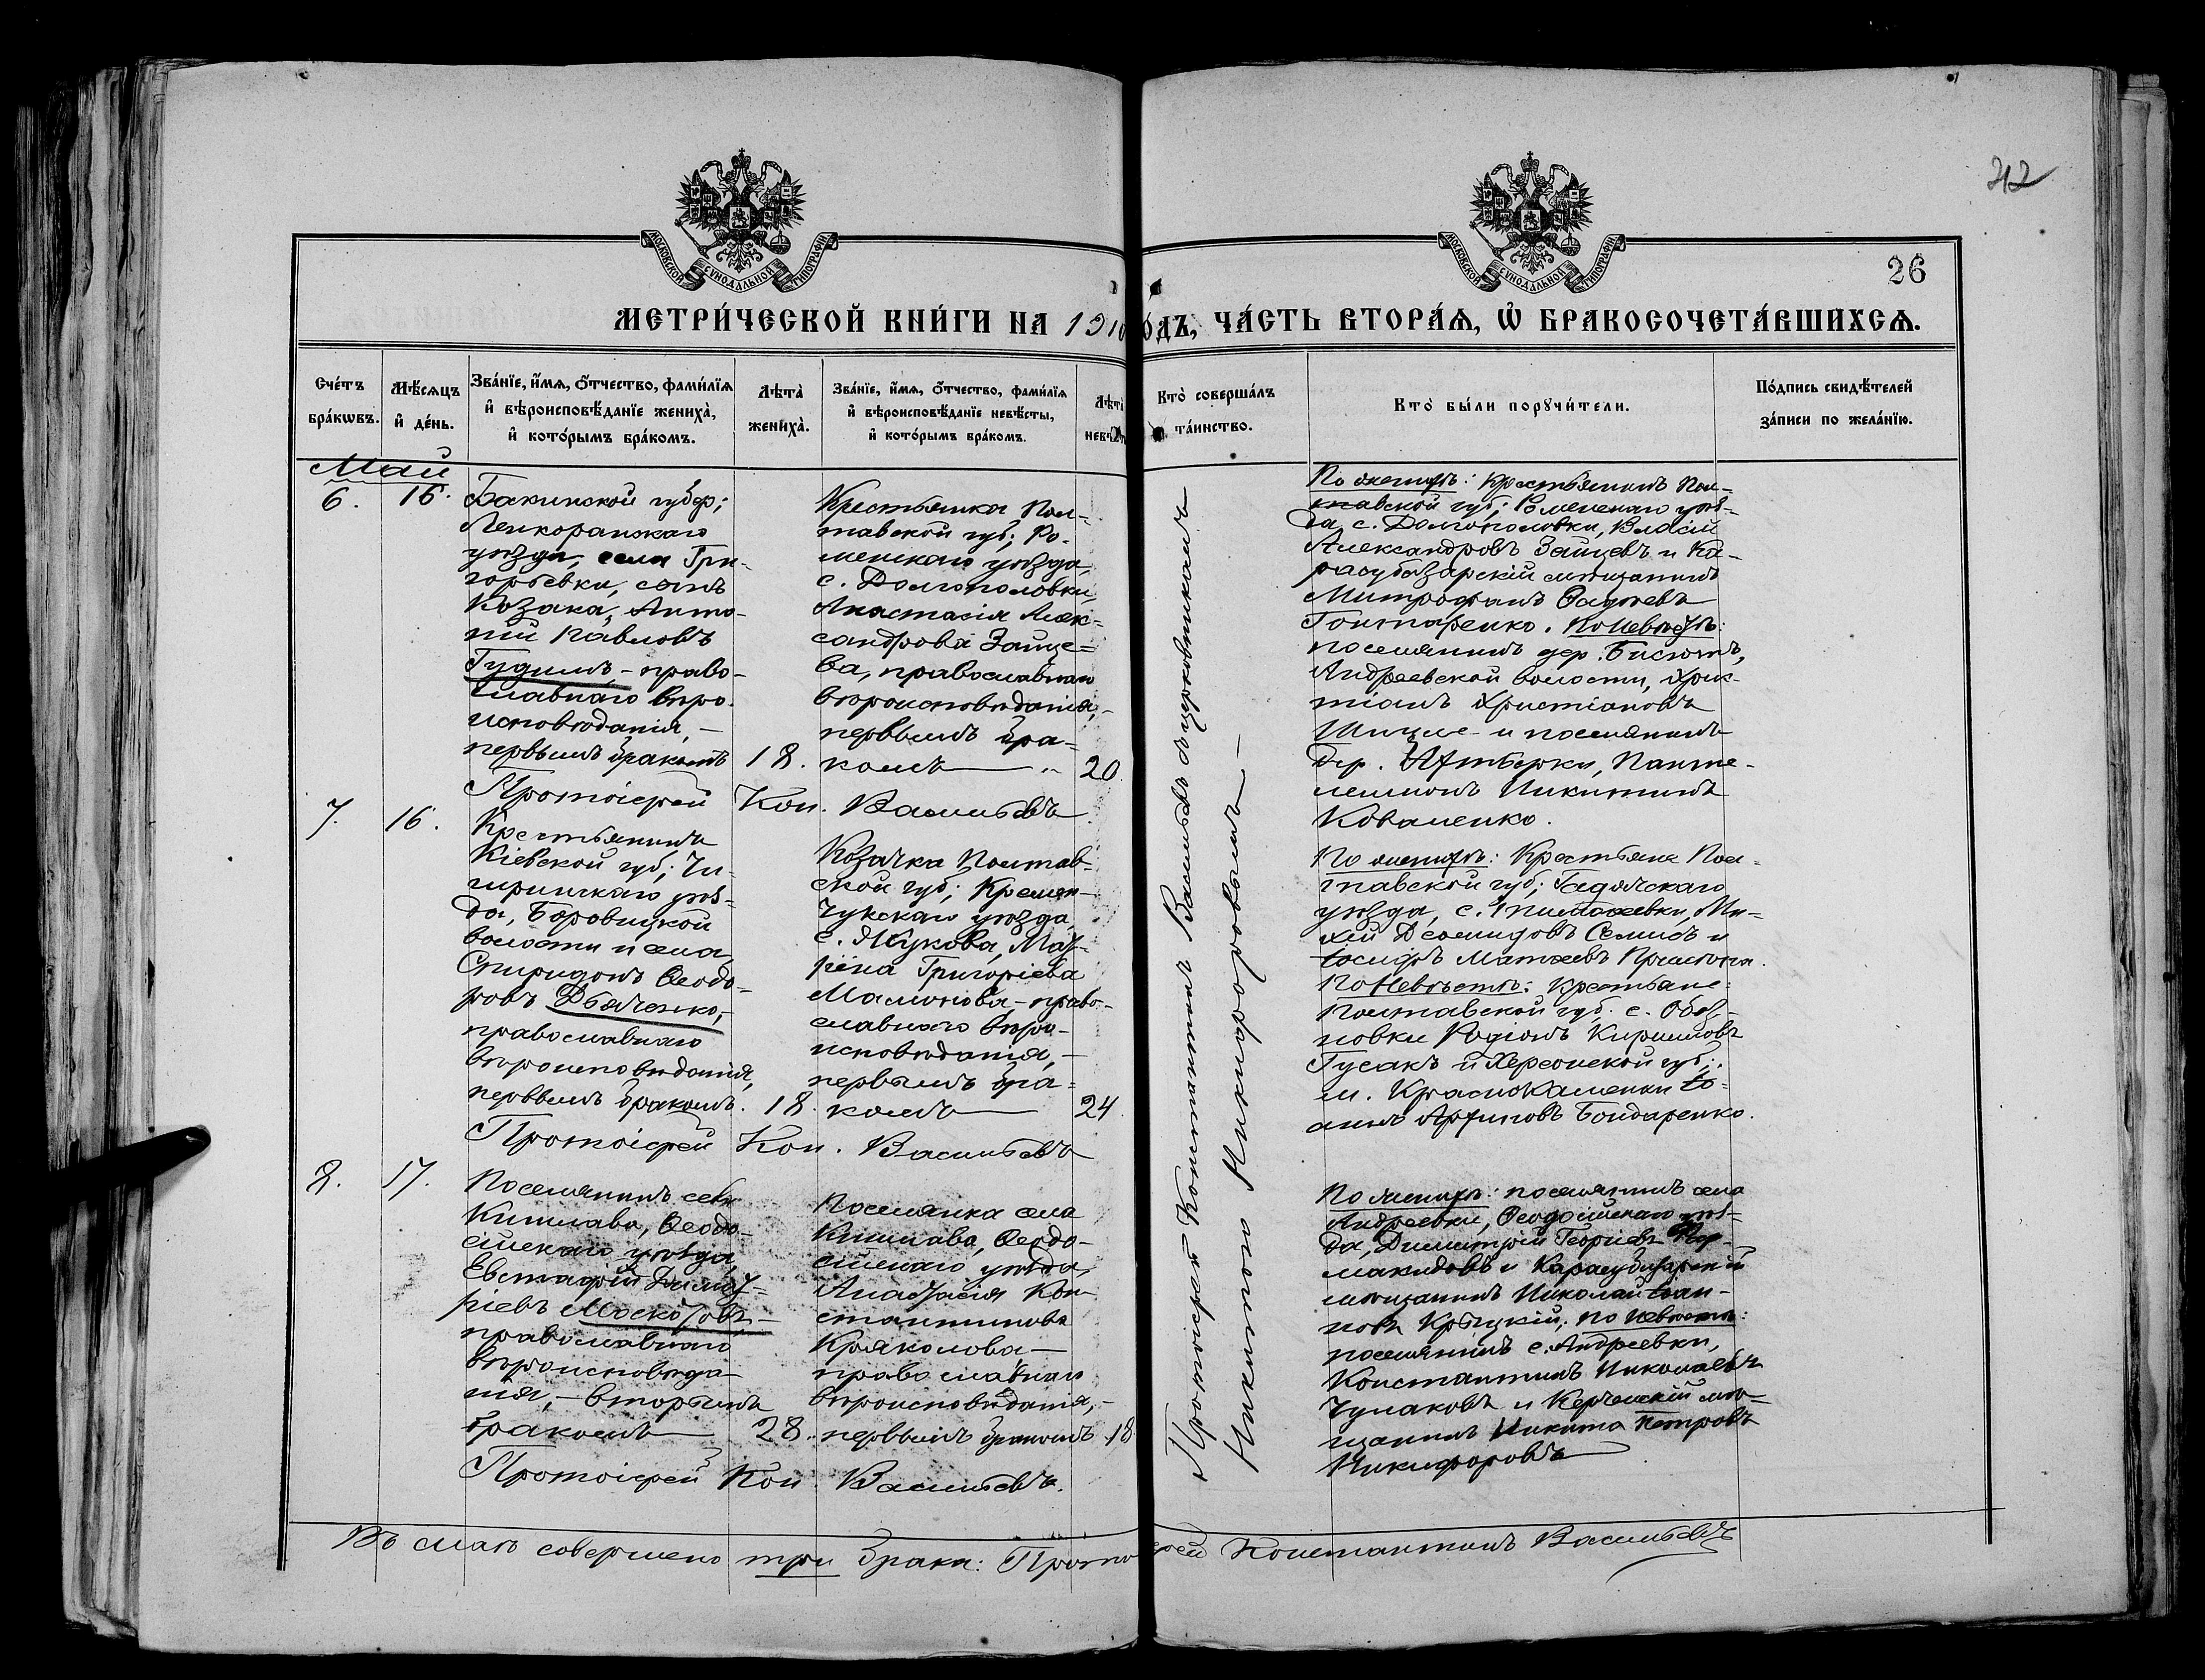 212
26
МОСКОВСКОЙ СѴНОДАЛЬНОЙ ТИПОГРАФІИ
МОСКОВСКОЙ СѴНОДАЛЬНОЙ ТИПОГРАФІИ
МЕТРИ́ЧЕСКОЙ КНИ́ГИ НА 1910 ГО́ДЪ, ЧА́СТЬ ВТОРА́Ѧ, Ѡ҆ БРАКОСОЧЕТА́ВШИХСѦ.
Сче́тъ
бра́кѡвъ.
Мѣ́сѧцъ
и҆ де́нь.
Зва́нїе, и҆́мѧ, ѻ҆́тчество, фами́лїѧ
и҆ вѣроисповѣ́данїе жениха̀,
и҆ кото́рымъ бра́комъ.
Лѣта̀
жениха̀.
Зва́нїе, и҆́мѧ, ѻ҆́тчество, фами́лїѧ
и҆ вѣроисповѣ́данїе невѣ́сты,
и҆ кото́рымъ бра́комъ.
Лѣта̀
невѣ́сты
Кто̀ соверша́лъ
та́инство.
Кто̀ бы́ли порꙋчи́тели.
По́дпись свидѣ́телей
за́писи по жела́нїю.
Май
6. 16.
Бакинской губер;
Ленкоранскаго
уѣзда, села Гри-
горьевки, сынъ
Козака, Анто-
ній Павловъ
Гудимъ, - право-
славнаго вѣро-
исповѣданія, -
первымъ бракомъ
18.
Крестьянка Пол-
тавской губ; Ро-
менскаго уѣзда,
с. Долгополовки,
Анастасія Алек-
сандрова Зайце-
ва, православнаго
вѣроисповѣданія, -
первымъ бра-
комъ
20.
Протоіерей Кон. Васильевъ
Протоіерей Константинъ Васильевъ съ церковникомъ
Никитою Никифоровымъ -
По женихѣ: Крестьянинъ Пол-
тавской губ; Роменскаго уѣз-
да, с. Долгополовки, Власій
Александровъ Зайцевъ и Ка-
расубазарскій мѣщанинъ
Митрофанъ Ѳадѣевъ
Гонтаренко. По Невѣстѣ:
поселянинъ дер. Бисютъ,
Андреевской волости, Хрис-
тіанъ Христіановъ
и поселянинъ
дер. Панте-
леимонъ Никитинъ
Коваленко.
7. 16.
Крестьянинъ
Кіевской губ; Чи-
гиринскаго уѣз-
да, Боровицкой
волости и села,
Спиридонъ Ѳеодо-
ровъ Дьяченко, -
православнаго
вѣроисповѣданія,
первымъ бракомъ.
18.
Козачка Полтав-
ской губ; Кремен-
чукскаго уѣзда,
с. Жукова, Мат-
рена Григоріева
Мамонова, - право-
славнаго вѣро-
исповѣданія, -
первымъ бра-
комъ
24.
Протоіерей Кон. Васильевъ
По женихѣ: Крестьяне Пол-
тавской губ; Гадячскаго
уѣзда, с. Ми-
хей Семидъ и
Іосифъ Матѳеевъ
По Невѣстѣ: Крестьяне:
Полтавской губ. с. Обоз-
новки Родіонъ Кириловъ
Гусакъ и Херсонской губ;
м. Краснокаменки Іо-
аннъ Архиповъ Бондаренко.
8. 17.
Поселянинъ села
Кишлава, Ѳеодо-
сійскаго уѣзда,
Евстафій Димит-
ріевъ -
православнаго
вѣроисповѣда-
нія, - вторымъ
бракомъ
28.
Поселянка села
Кишлава, Ѳеодо-
сійскаго уѣзда,
Анастасія Кон-
стантинова
Кряколова -
православнаго
вѣроисповѣданія, -
первымъ бракомъ
18
Протоіерей Кон. Васильевъ.
По женихѣ: поселянинъ села
Андреевки, Ѳеодосійскаго уѣз-
да, Димитрій Георгіевъ
и Карасубазарскій
мѣщанинъ Николай Іоан-
новъ Крыцкій; по невѣстѣ:
поселянинъ с. Андреевки,
Константинъ Николаевъ
Чумаковъ и Керченскій мѣ-
щанинъ Никита Петровъ
Никифоровъ
Въ маѣ совершено три брака: Протоіерей Константинъ Васильевъ